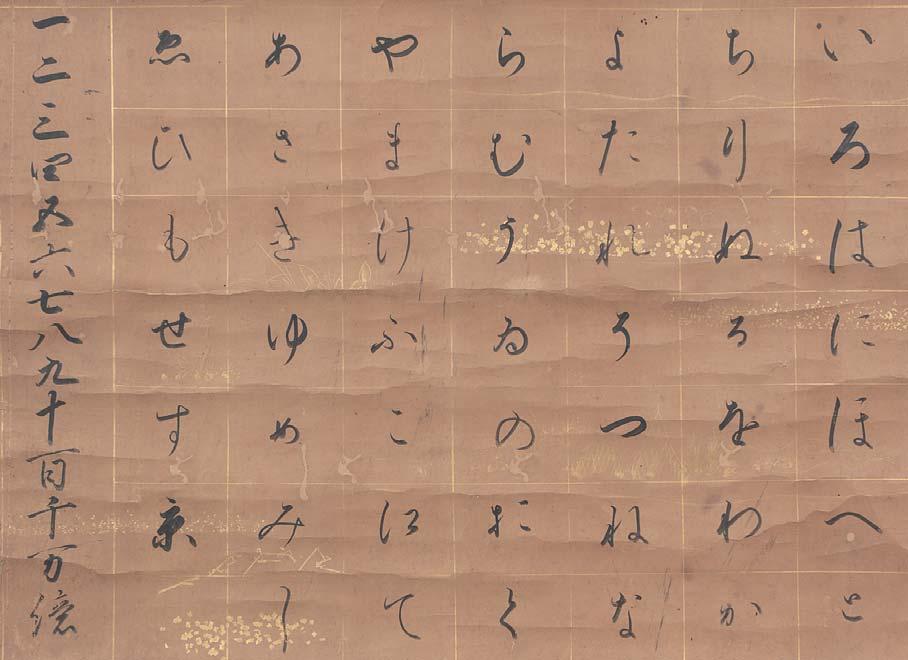 いろはにほへと
ちりぬるをわか
よたれそつねな
らむうゐのおく
やまけふこえて
あさきゆめみし
ゑひもせす京
一二三四五六七八九十百千万億